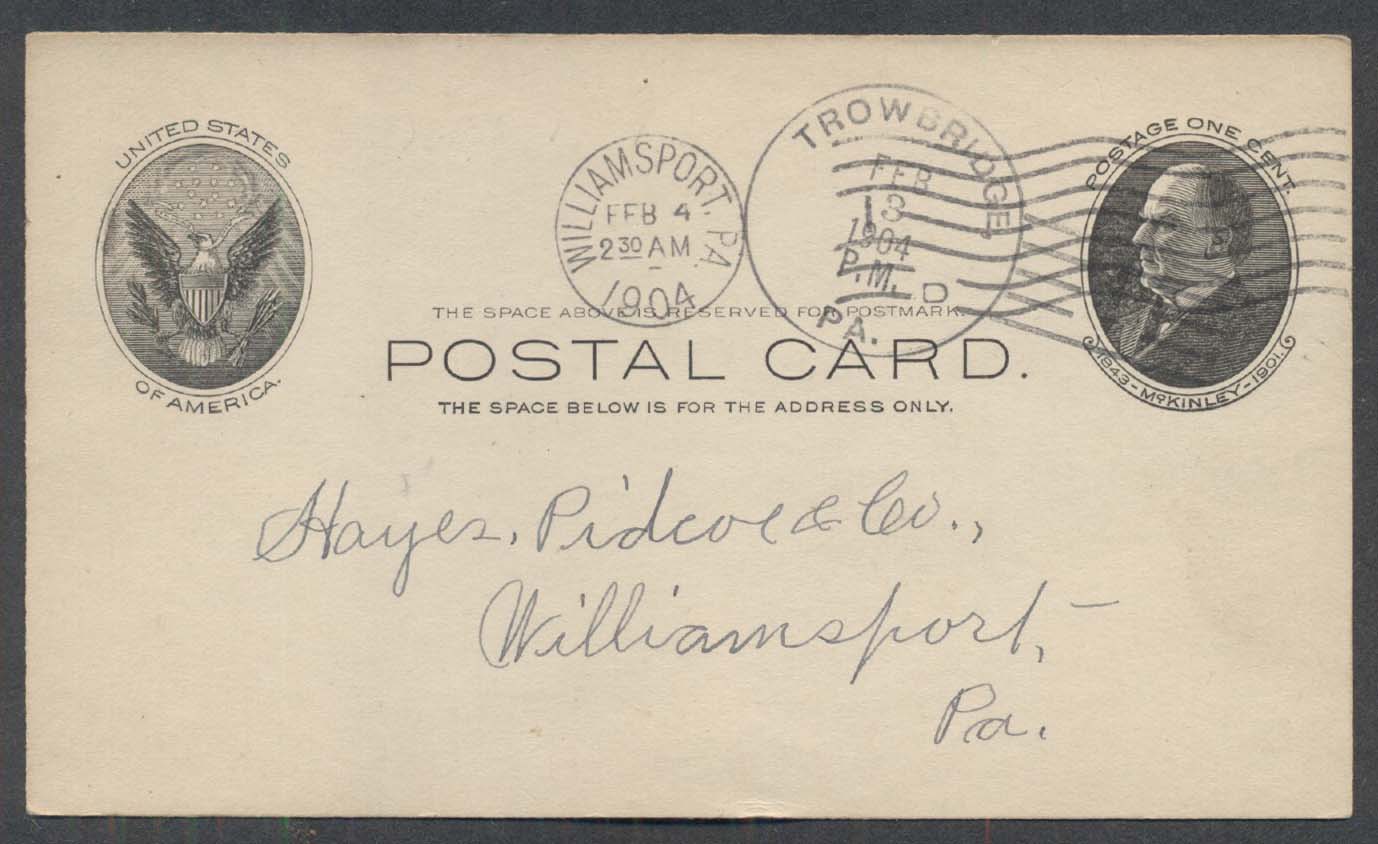 UNITED STATES
OF AMERICA.
WILLIAMSPORT, PA.
FEB 4
2 30 AM
1904
TROWBRIDGE,
FEB
13
1904
P.M.
D
PA.
POSTAGE ONE CENT.
1843-McKINLEY-1901.
THE SPACE ABOVE IS RESERVED FOR POSTMARK.
POSTAL CARD.
THE SPACE BELOW IS FOR THE ADDRESS ONLY.
Hayes, Pidcoe & Co.,
Williamsport,
Pa.